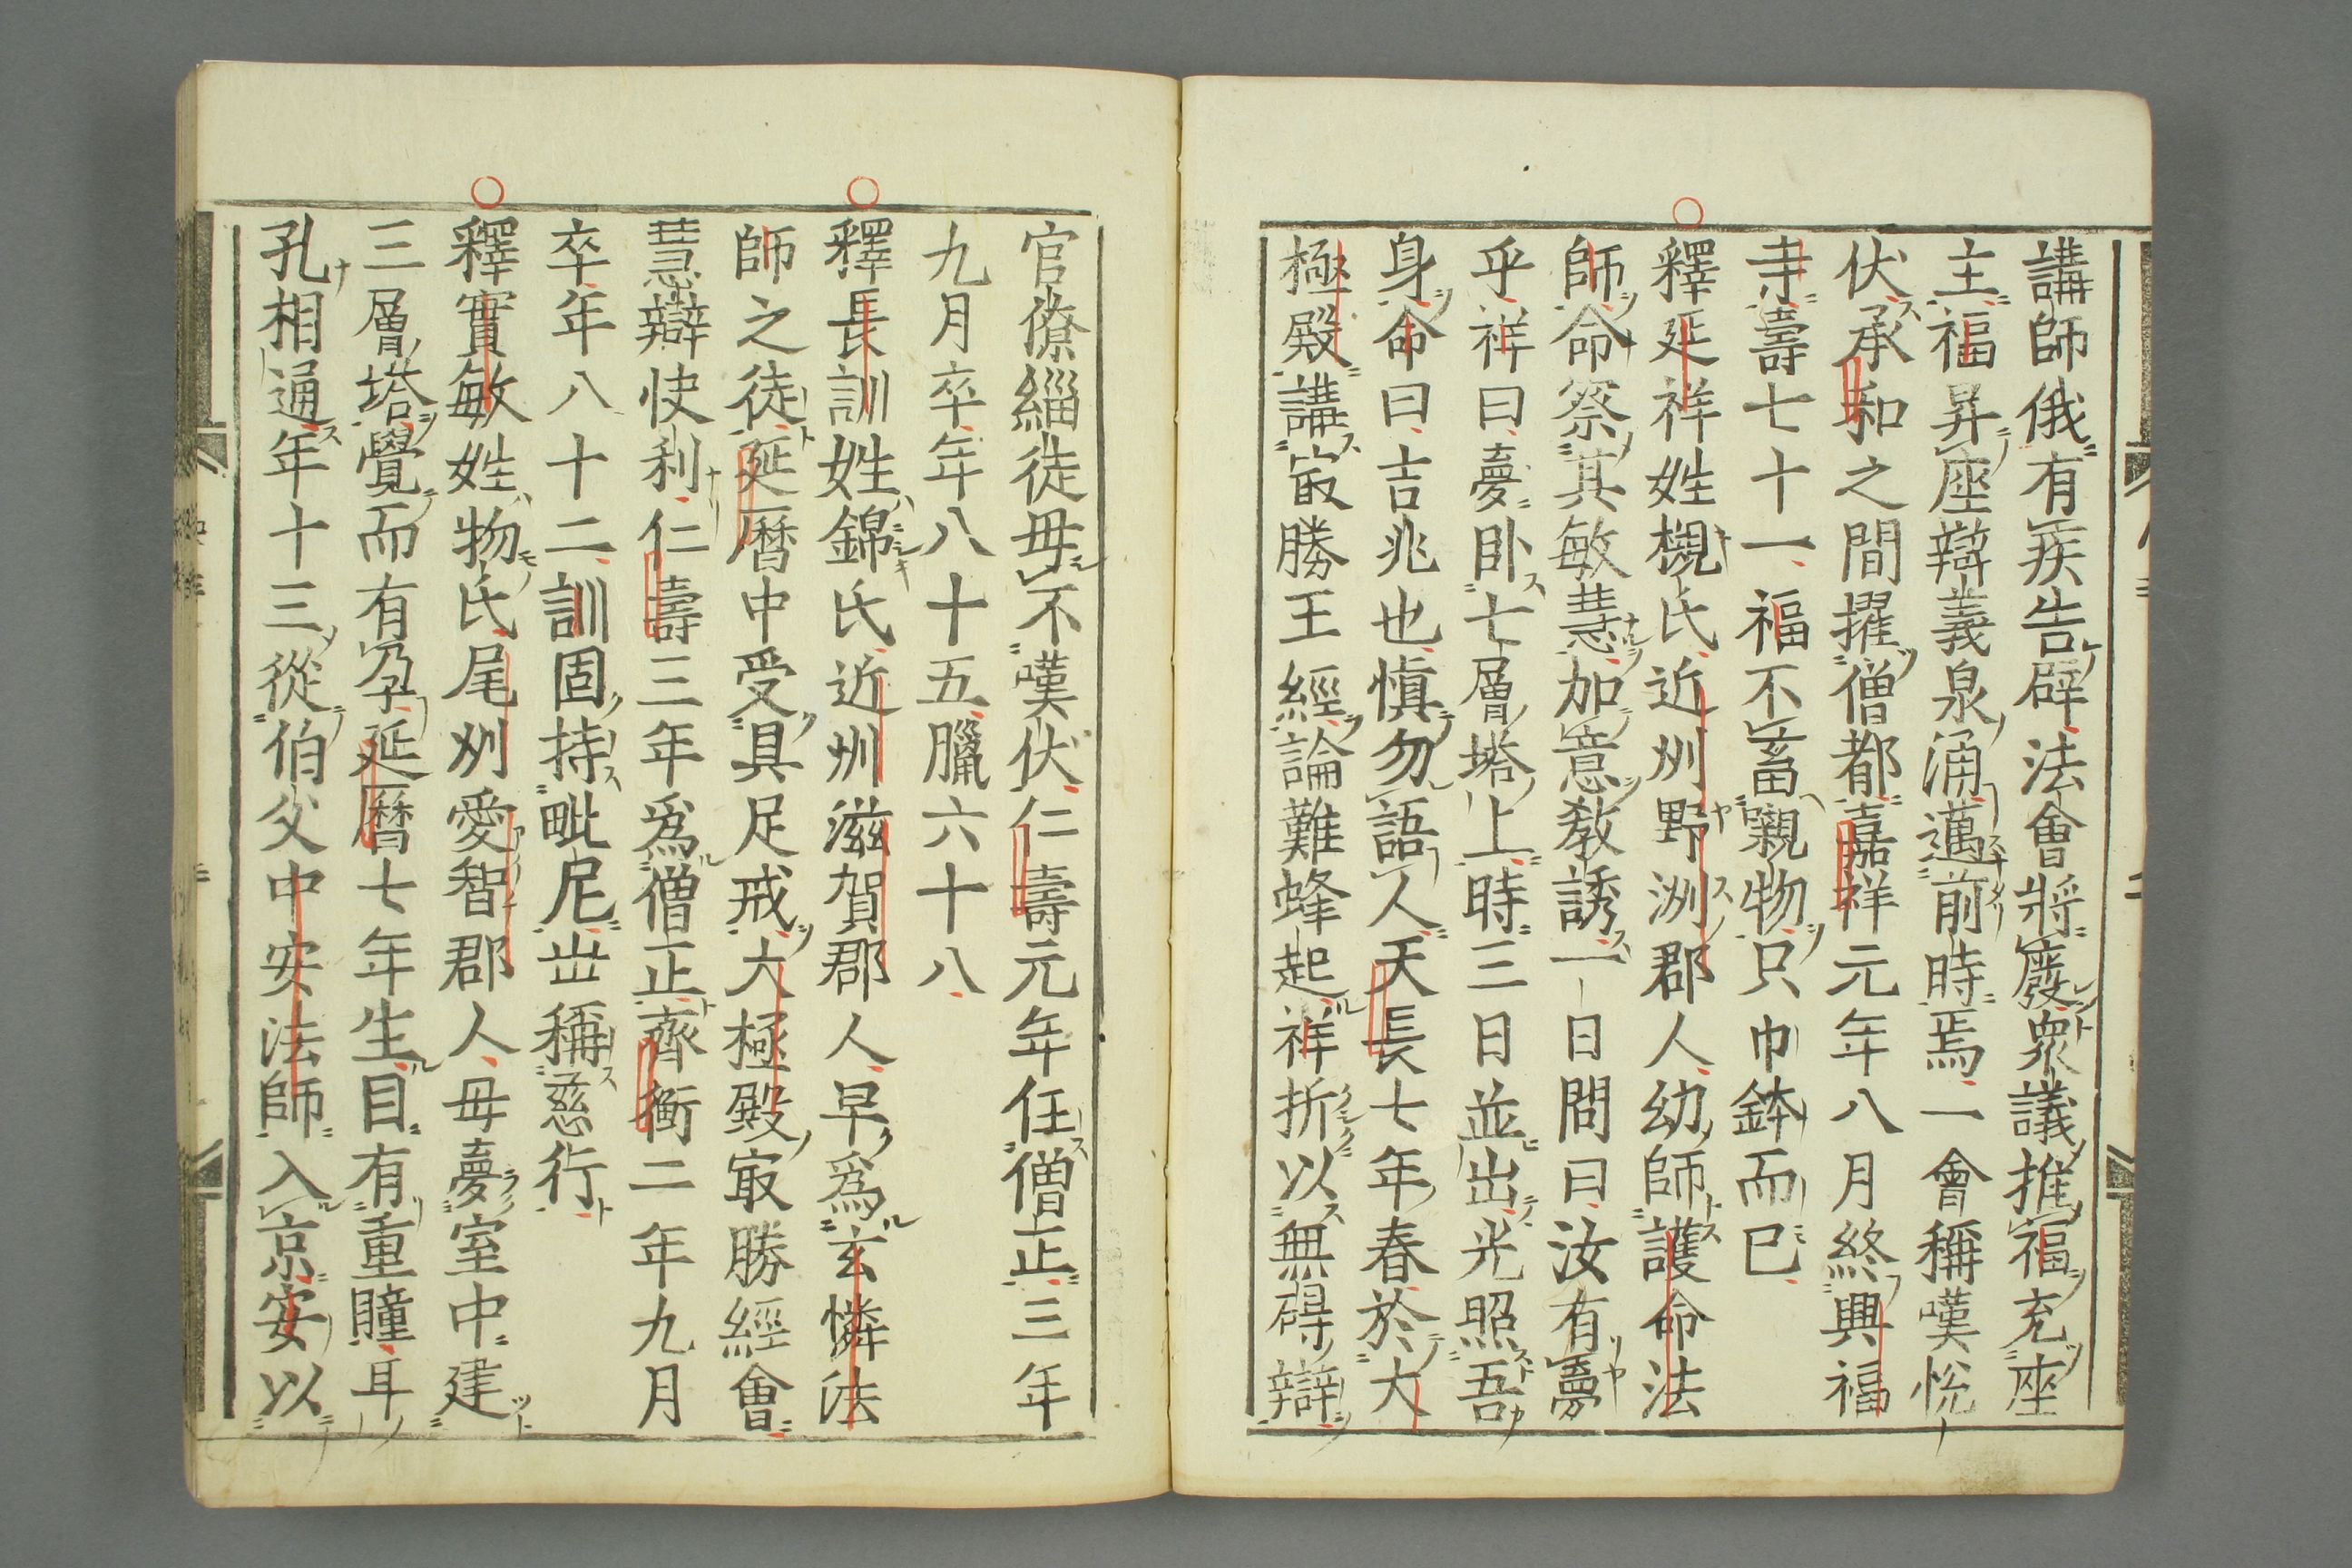 講師俄有疾告辟法會將廢衆議推福充座
主福昇座辯義泉涌邁前時焉一會稱嘆悦
伏承和之間擢僧都嘉祥元年八月終興福
寺壽七十一福不畜襯物只巾鉢而已
釋延祥姓槻氏近州野洲郡人幼師護命法
師命察其敏慧加意教誘一日問曰汝有夢
乎祥曰夢臥七層塔上時三日並出光照吾
身命曰吉兆也愼勿語人天長七年春於大
極殿講最勝王經論難蜂起祥折以無碍辯
官僚緇徒毋不嘆伏仁壽元年任僧正三年
九月卒年八十五臘六十八
釋長訓姓錦氏近州滋賀郡人早爲玄憐法
師之徒延曆中受具足戒大極殿最勝經會
慧辯快利仁壽三年爲僧正齊衡二年九月
卒年八十二訓固持毗尼世稱慈行
釋實敏姓物氏尾州愛智郡人毋夢室中建
三層塔覺而有孕延曆七年生目有重瞳耳
孔相通年十三從伯父中安法師入京安以